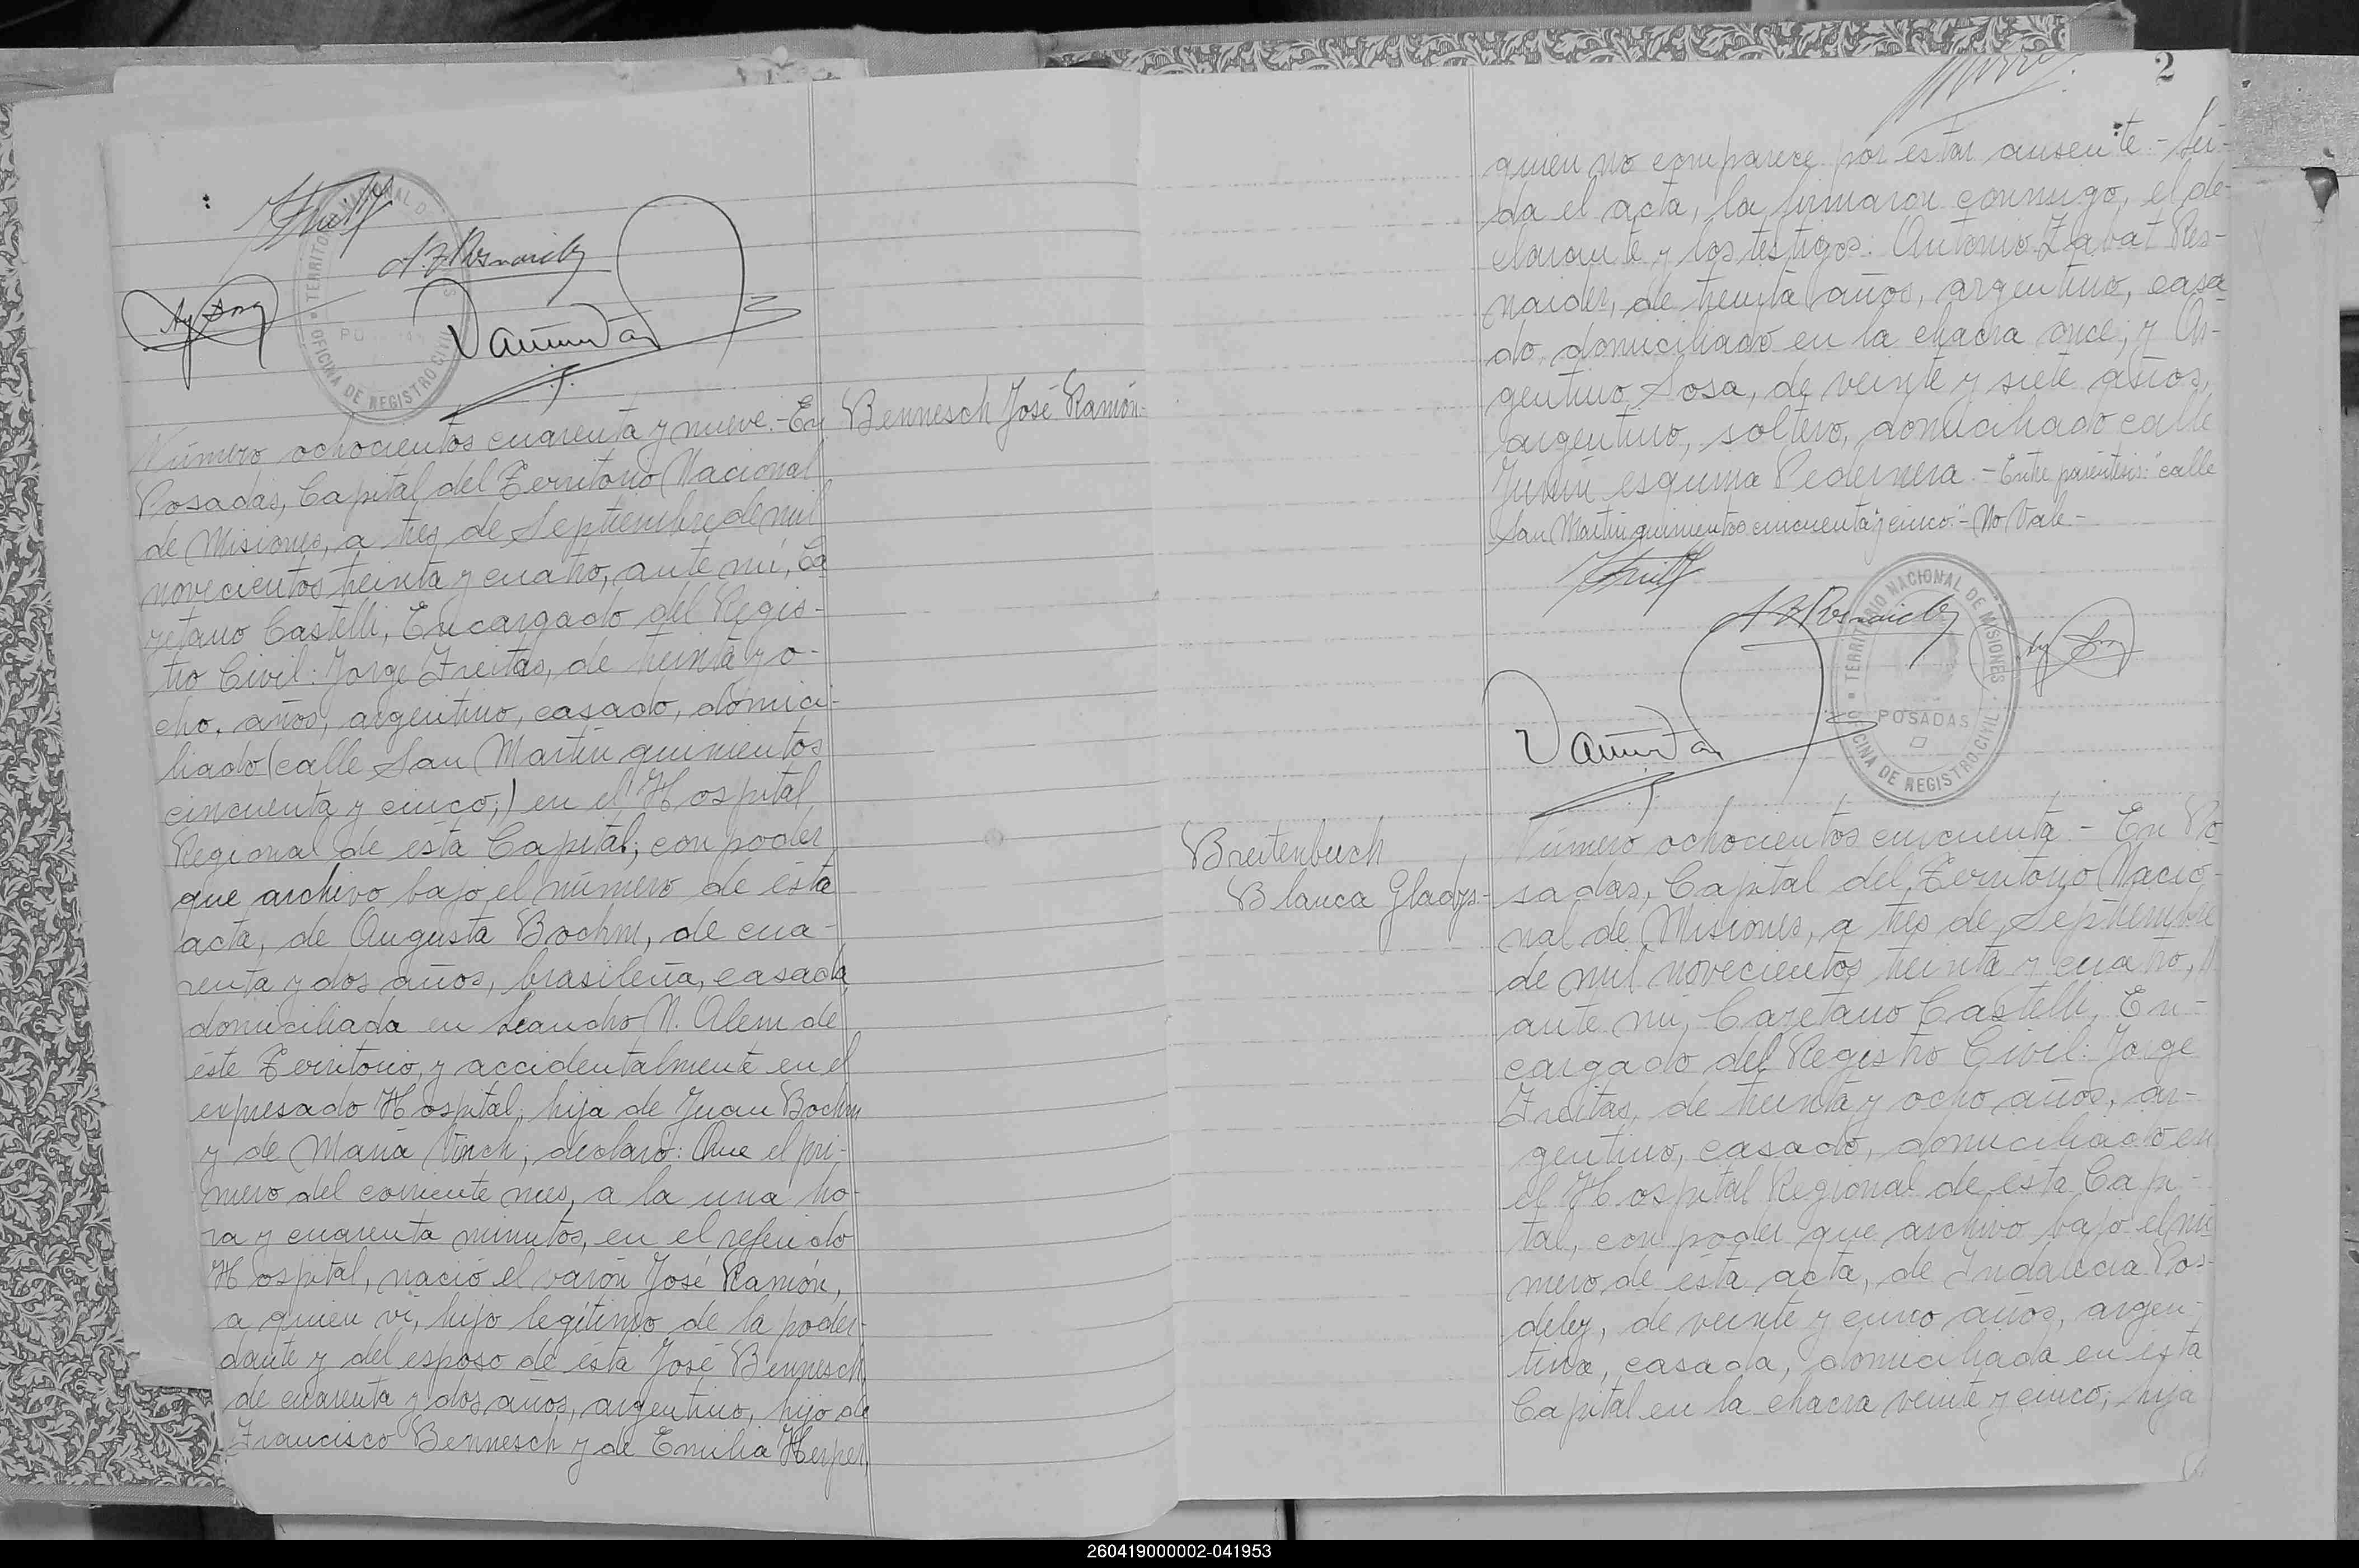 TERRITORIO NACIONAL D
OFICINA DE REGISTRO CIVIL
Número ochocientos cuarenta y nueve.- En
Bennesch José Ramón-
Posadas, Capital del Territorio Nacional
de Misiones, a tres de Septiembre de mil
novecientos treinta y cuatro, ante mí, Ca
yetano Castelli, Encargado del Regis-
tro Civil: Jorge Freitas, de treinta y o-
cho, años, argentino, casado, domici-
liado (calle San Martín quinientos
cincuenta y cinco;) en el Hospital
Regional de esta Capital; con poder
que archivo bajo el número de ésta
acta, de Augusta Bochm, de cua-
renta y dos años, brasileña, casada
domiciliada en Leandro N. Alem de
éste Territorio, y accidentalmente en el
expresado Hospital, hija de Juan Bochm
y de María Vinch; declaró: Que el pri-
mero del corriente mes, a la una ho-
ra y cuarenta minutos, en el referido
Hospital, nació el varón José Ramón,
a quien ví, hijo legítimo de la poder-
dante y del esposo de ésta José Bennesch,
de cuarenta y dos años, argentino, hijo de
Francisco Bennesch y de Emilia Herper,
2
quien no comparece por estar ausente.- Leí-
da el acta, la firmaron conmigo, el de-
clarante y los testigos: Antonio Zabat Res-
naider, de treinta años, argentino, casa
do, domiciliado en la chacra once; y Ar-
gentino Sosa, de veinte y siete años,
argentino, soltero, domiciliado calle
Junín esquina Pedernera.- Entre paréntesis: "calle
San Martín quinientos cincuenta y cinco."- No Vale-
TERRITORIO NACIONAL DE MISIONES
POSADAS
OFICINA DE REGISTRO CIVIL
Breitenbuch
Blanca Gladys-
Número ochocientos cincuenta.- En Po
sadas, Capital del Territorio Nacio-
nal de Misiones, a tres de Septiembre
de mil novecientos treinta y cuatro,
ante mí, Cayetano Castelli, En-
cargado del Registro Civil: Jorge
Freitas, de treinta y ocho años, ar-
gentino, casado, domiciliado en
el Hospital Regional de ésta Capi-
tal, con poder que archivo bajo el nú
mero de ésta acta, de Indalecia Pos-
deley, de veinte y cinco años, argen-
tina, casada, domiciliada en ésta
Capital en la chacra veinte y cinco; hija
260419000002-041953